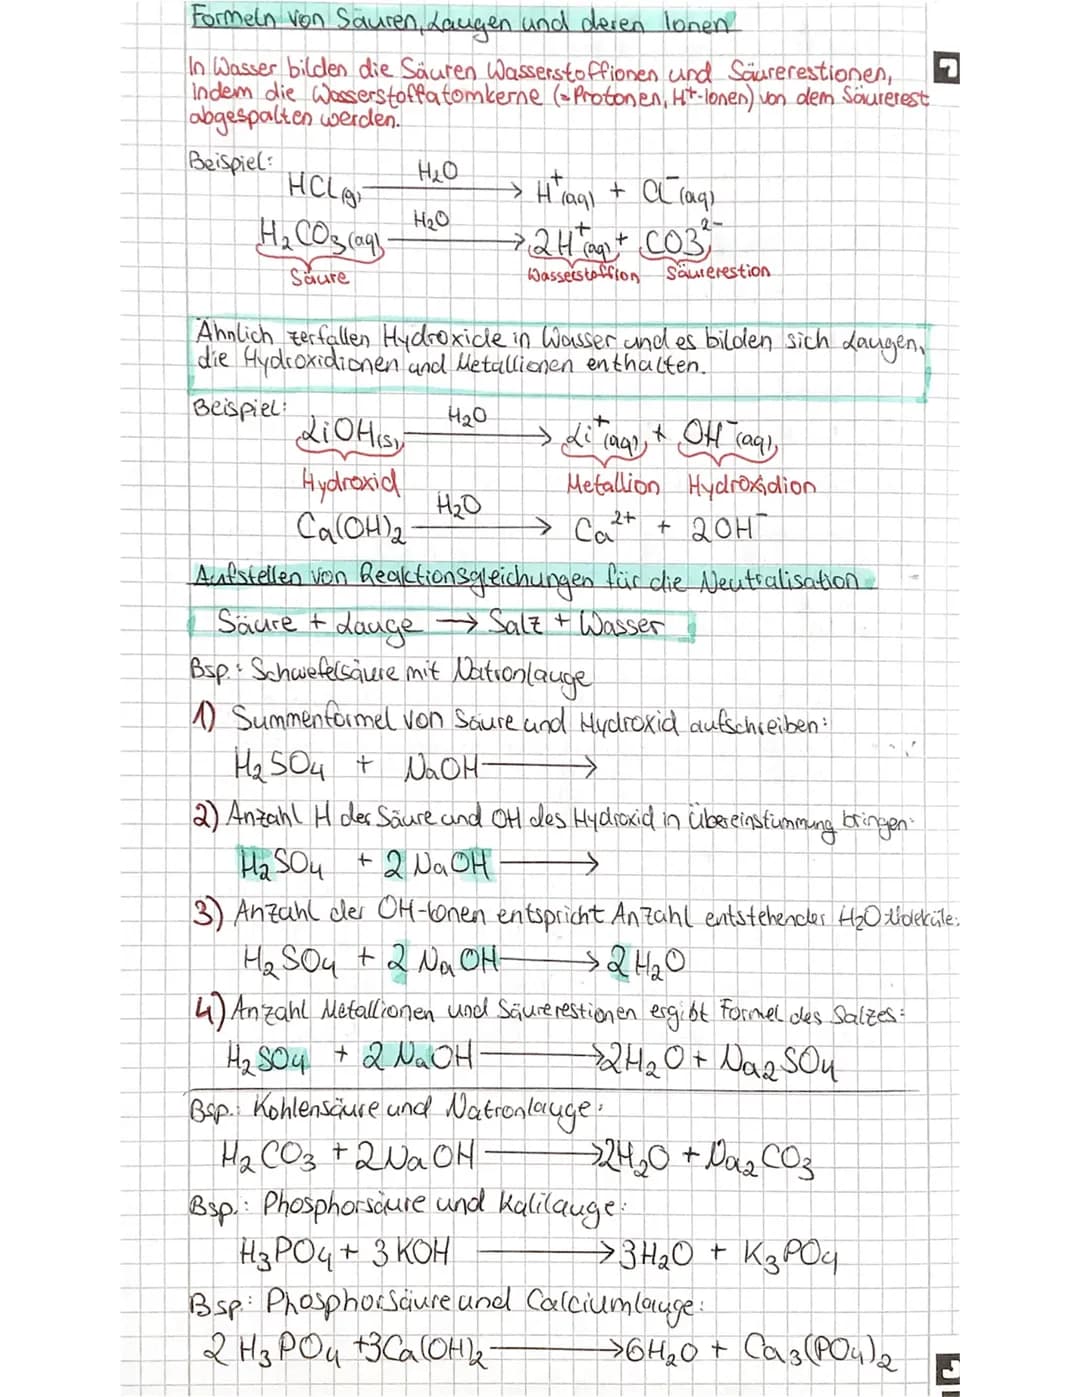 Formeln von Säuren, Laugen und deren Ionen
In Wasser bilden die Säuren Wasserstoffionen und Säurerestionen,
indem die Wasserstoffatomkerne (=Protonen, H⁺-Ionen) von dem Säurerest
abgespalten werden.
Beispiel:
HCl(g) H₂O → H⁺(aq) + Cl⁻(aq)
H₂CO₃(aq) H₂O → 2H⁺(aq) + CO3²⁻
Säure Wasserstoffion Säurerestion
Ähnlich zerfallen Hydroxide in Wasser und es bilden sich Laugen,
die Hydroxidionen und Metallionen enthalten.
Beispiel:
LiOH(s) H₂O → Li⁺(aq) + OH⁻(aq)
Hydroxid Metallion Hydroxidion
Ca(OH)₂ H₂O → Ca²⁺ + 2OH⁻
Aufstellen von Reaktionsgleichungen für die Neutralisation
Säure + Lauge → Salz + Wasser
Bsp.: Schwefelsäure mit Natronlauge
1) Summenformel von Säure und Hydroxid aufschreiben:
H₂SO₄ + NaOH →
2) Anzahl H der Säure und OH des Hydroxid in übereinstimmung bringen:
H₂SO₄ + 2 NaOH →
3) Anzahl der OH-Ionen entspricht Anzahl entstehender H₂O Moleküle:
H₂SO₄ + 2 NaOH → 2H₂O
4) Anzahl Metallionen und Säurerestionen ergibt Formel des Salzes:
H₂SO₄ + 2 NaOH → 2H₂O + Na₂SO₄
Bsp.: Kohlensäure und Natronlauge:
H₂CO₃ + 2NaOH → 2H₂O + Na₂CO₃
Bsp.: Phosphorsäure und Kalilauge:
H₃PO₄ + 3 KOH → 3H₂O + K₃PO₄
Bsp.: Phosphorsäure und Calciumlauge:
2 H₃PO₄ + 3Ca(OH)₂ → 6H₂O + Ca₃(PO₄)₂